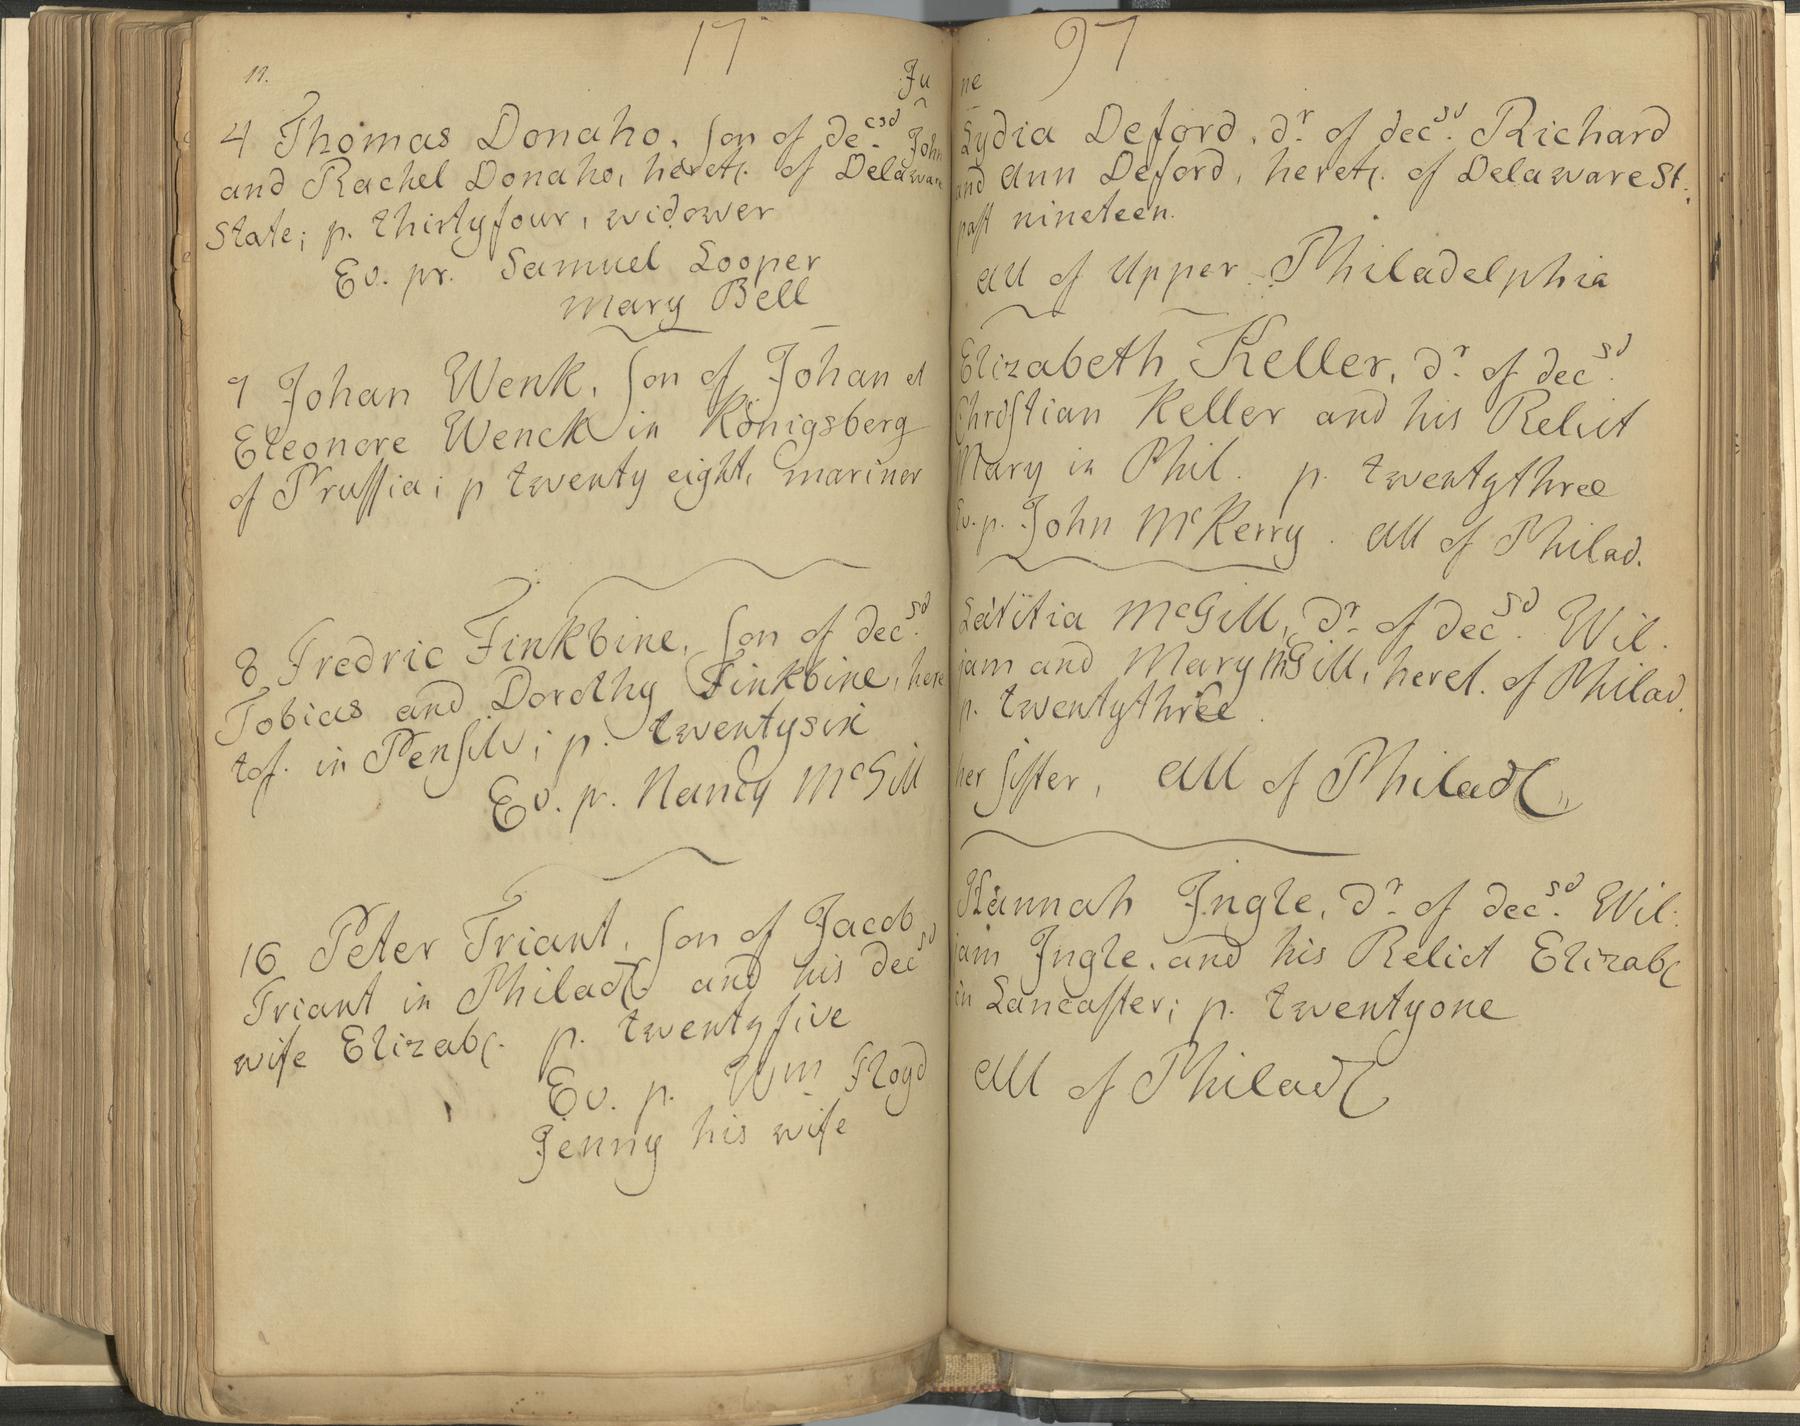 17
11.
Ju
4 Thomas Donaho, son of decsd John
and Rachel Donaho, heretf. of Delaware
State; p. thirtyfour, widower
Ev. pr. Samuel Looper
Mary Bell
7 Johan Wenk, son of Johan et
Eleonore Wenck in Königsberg
of Prussia; p twenty eight, mariner
8 Fredric Finkbine, son of decsd.
Tobias and Dorothy Finkbine, here
tof. in Pensilv; p. twentysix
Ev. pr. Nancy McGill
16 Peter Triant, son of Jacob
Triant in Philad and his decsd
wife Elizab. p. twentyfive
Ev. p. Wm Floyd
Jenny his wife
97
ne
Lydia Deford, dr. of decsd. Richard
and Ann Deford, heretf. of Delaware St.
past nineteen.
All of Upper Philadelphia
Elizabeth Keller, dr. of decsd.
Christian Keller and his Relict
Mary in Phil. p. twentythree
Ev. p. John McKerry. All of Philad.
Lätitia McGill, dr. of decsd. Wil.
jam and Mary McGill, heret. of Philad.
p. twentythree.
her sister, All of Philad
Hannah Ingle, dr. of decsd. Wil.
jam Ingle, and his Relict Elizab
in Lancaster; p. twentyone
All of Philad